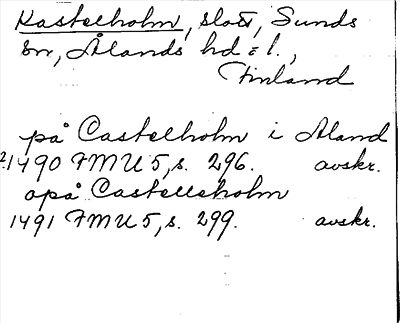 Kastelholm, slott, Sunds
sn, Ålands hd o l.,
Finland
på Castelholm i Aland
1490 FMU 5, s. 296. avskr.
opå Castelleholm
1491 FMU 5, s. 299. avskr.